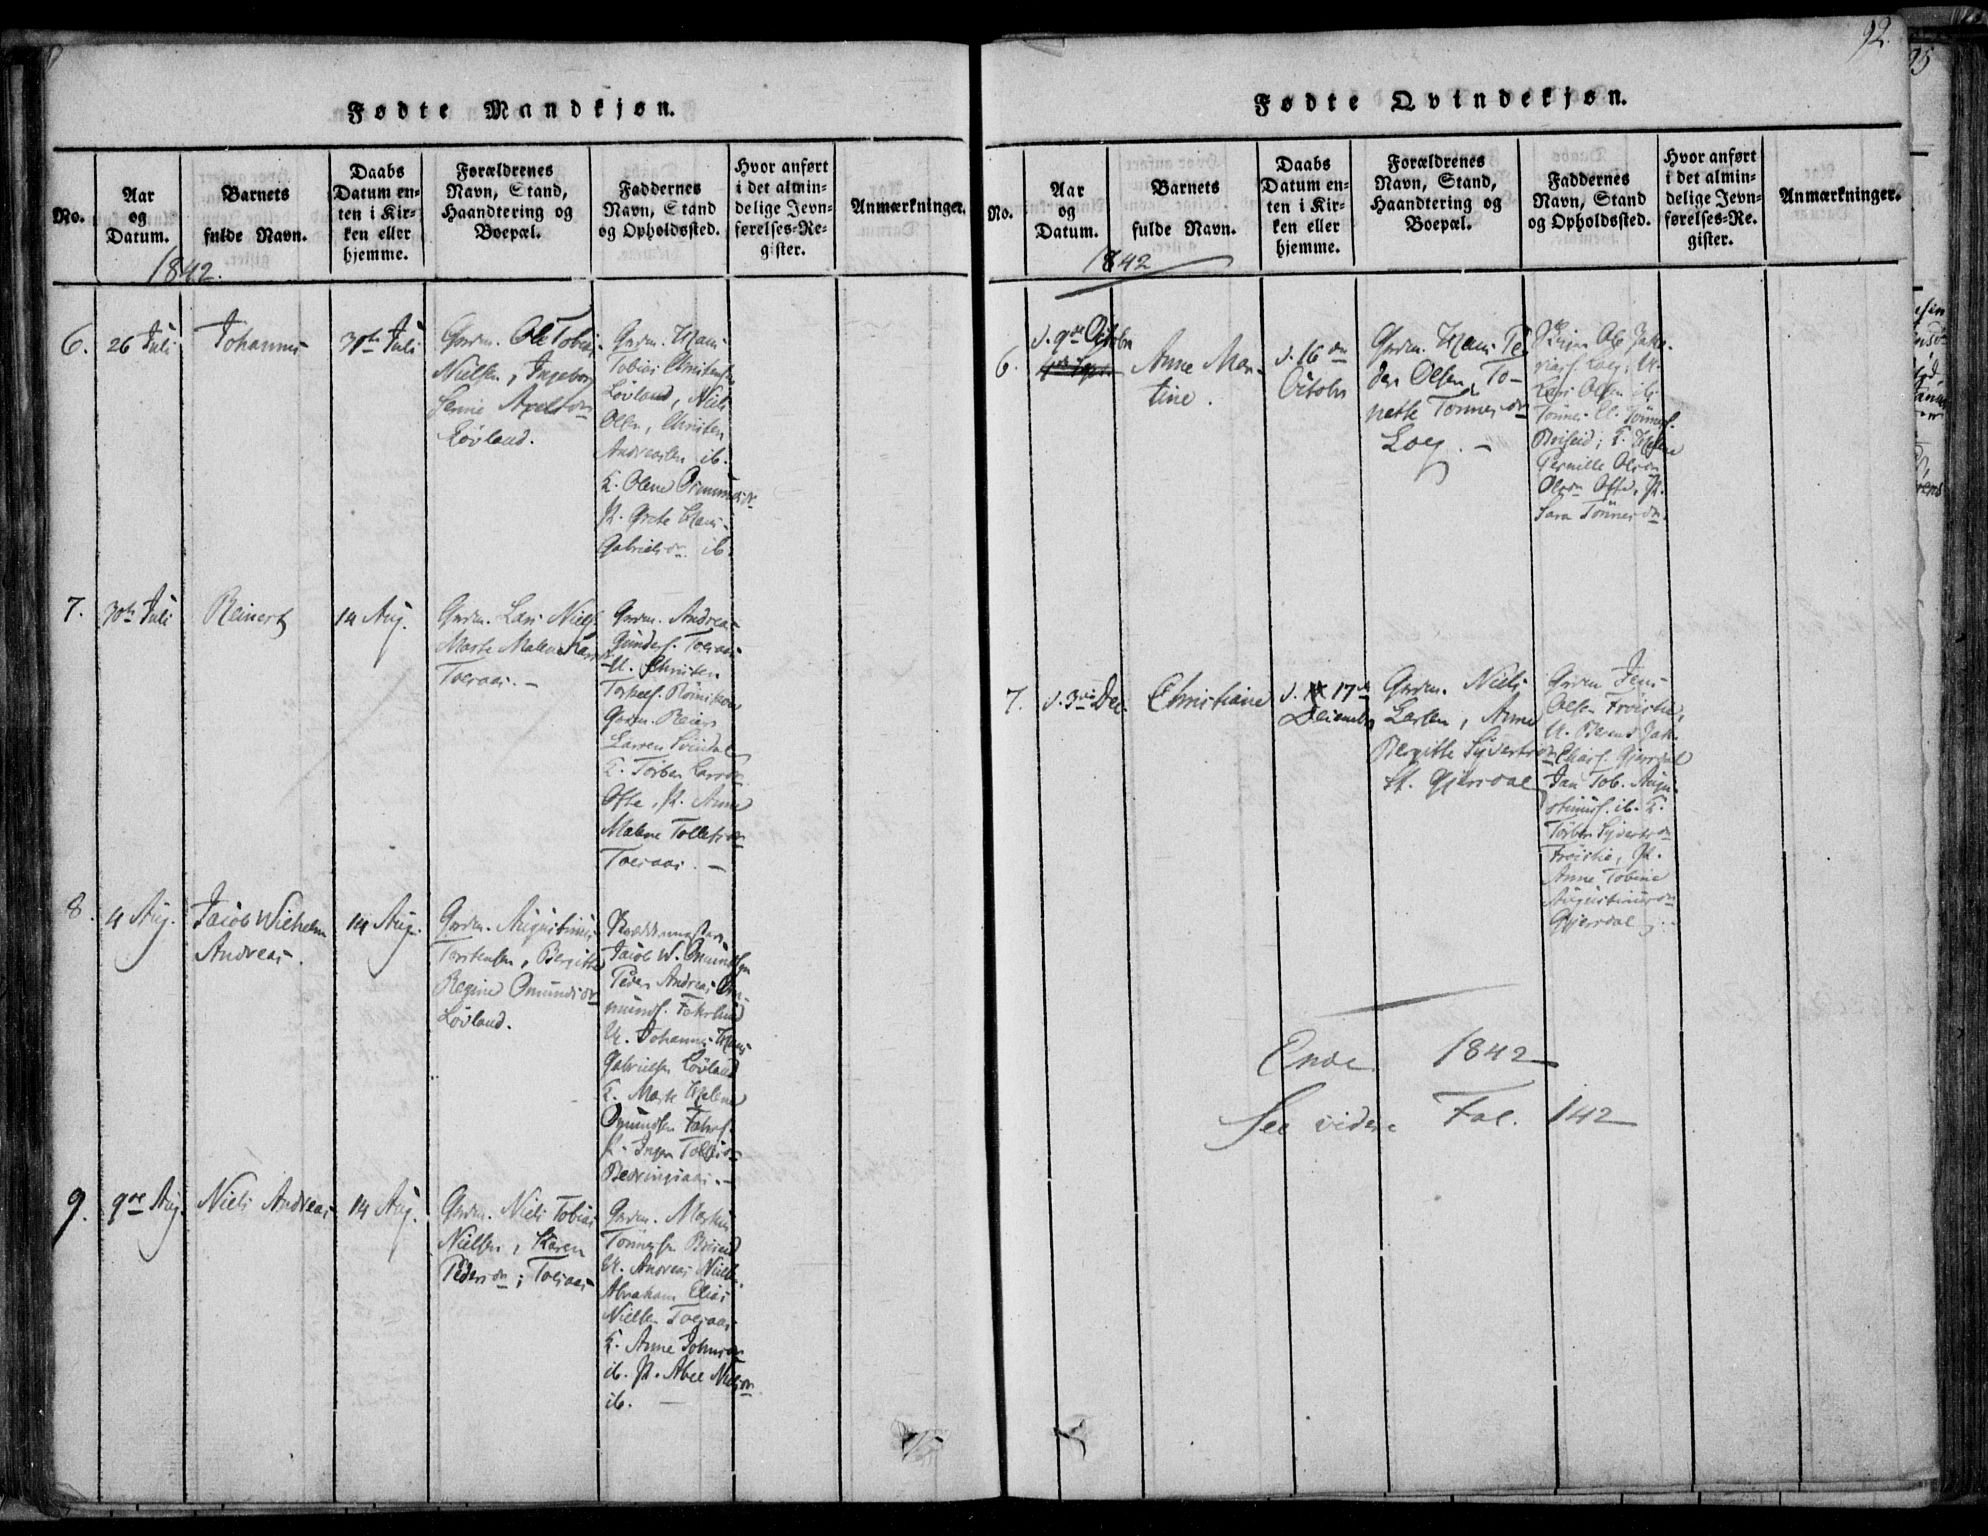 92.
95
Fødte Mandkjøn.
No.
Aar
og
Datum.
1842.
Barnets
fulde Navn.
Daabs
Datum en-
ten i Kir-
ken eller
hjemme.
Forældrenes
Navn, Stand,
Haandtering og
Boepæl.
Faddernes
Navn, Stand
og Opholdssted.
Hvor anført
i det almin-
delige Jevn-
førelses-Re-
gister.
Anmærkninger.
6.
26 Juli
Johannes
31te Juli
Grdm. Ole Tobias
Nielsen, Ingeborg
Serine Axelsdn
Løvland.
Grdm. Hans
Tobias Christensen
Løvland, Niels
Olsen, Christen
Andreasen ib.
K. Olene Ommunsdn
P. Grete Hans
Gabrielsdn ib.
7.
30te Juli
Reinert
14 Aug.
Grdm. Lars Niels.
Marte Malene
Toeraas. –
Grdm. Andreas
Gunders. Toeraas
U. Christen
Torkels.
Grdm. Reier
Larsen Svindal
K. Torber Larsdn
Ofte, P. Anne
Malene Tollefsdn
Toeraas. –
8.
4 Aug.
Jacob Wilhelm
Andreas.
14 Aug.
Grdm. Augustinus
Torstensen, Bergitte
Regine Omundsdn
Løvland.
Jacob W. Omundsen
Peder Andreas Om-
munds.
U. Johannes Hans
Gabrielsen Løvland
K. Marte Helene
P. Inger
9.
9de Aug.
Niels Andreas
14 Aug.
Grdm. Niels Tobias
Nielsen, Karen
Pedersdn; Toeraas
Grdm. Markus
Tønnesen
U. Andreas Niels.
Abraham Elias
Nielsen Toeraas
K. Anne Johnsdn
ib. P. Abel Nielsdn
ib. –
Fødte Qvindekjøn.
No.
Aar
og
Datum.
1842
Barnets
fulde Navn.
Daabs
Datum en-
ten i Kir-
ken eller
hjemme.
Forældrenes
Navn, Stand,
Haandtering og
Boepæl.
Faddernes
Navn, Stand
og Opholdssted.
Hvor anført
i det almin-
delige Jevn-
førelses-Re-
gister.
Anmærkninger.
6.
d. 9de Octobr
Anne Mar-
tine.
d. 16de
Octobr
Grdm. Hans Pe-
der Olsen, To-
nette Tønnesdn
Loeg. –
Ole Zaka-
rias. Loeg, U.
Lars Olsen ib.
Tønnes El. Tønnes.
K. Helene
Pernille Olsdn
Ofte, P.
Sara Tønnesdn.
7.
d. 3de Dec.
Christiane
d. 17de
Decembr
Grdm. Niels
Larsen, Anne
Bergitte Syvertsdn
Gjersdal
Grdm Jens
Olsen Frøistie,
U. Berent Jak.
Elias. Gjersdal
Jan Tob. Augu-
stinus. ib. K.
Torber Syvertsdn
Frøistie, P.
Anne Tobine
Augustinusdn
Gjersdal.
Ende 1842
See videre Fol. 142